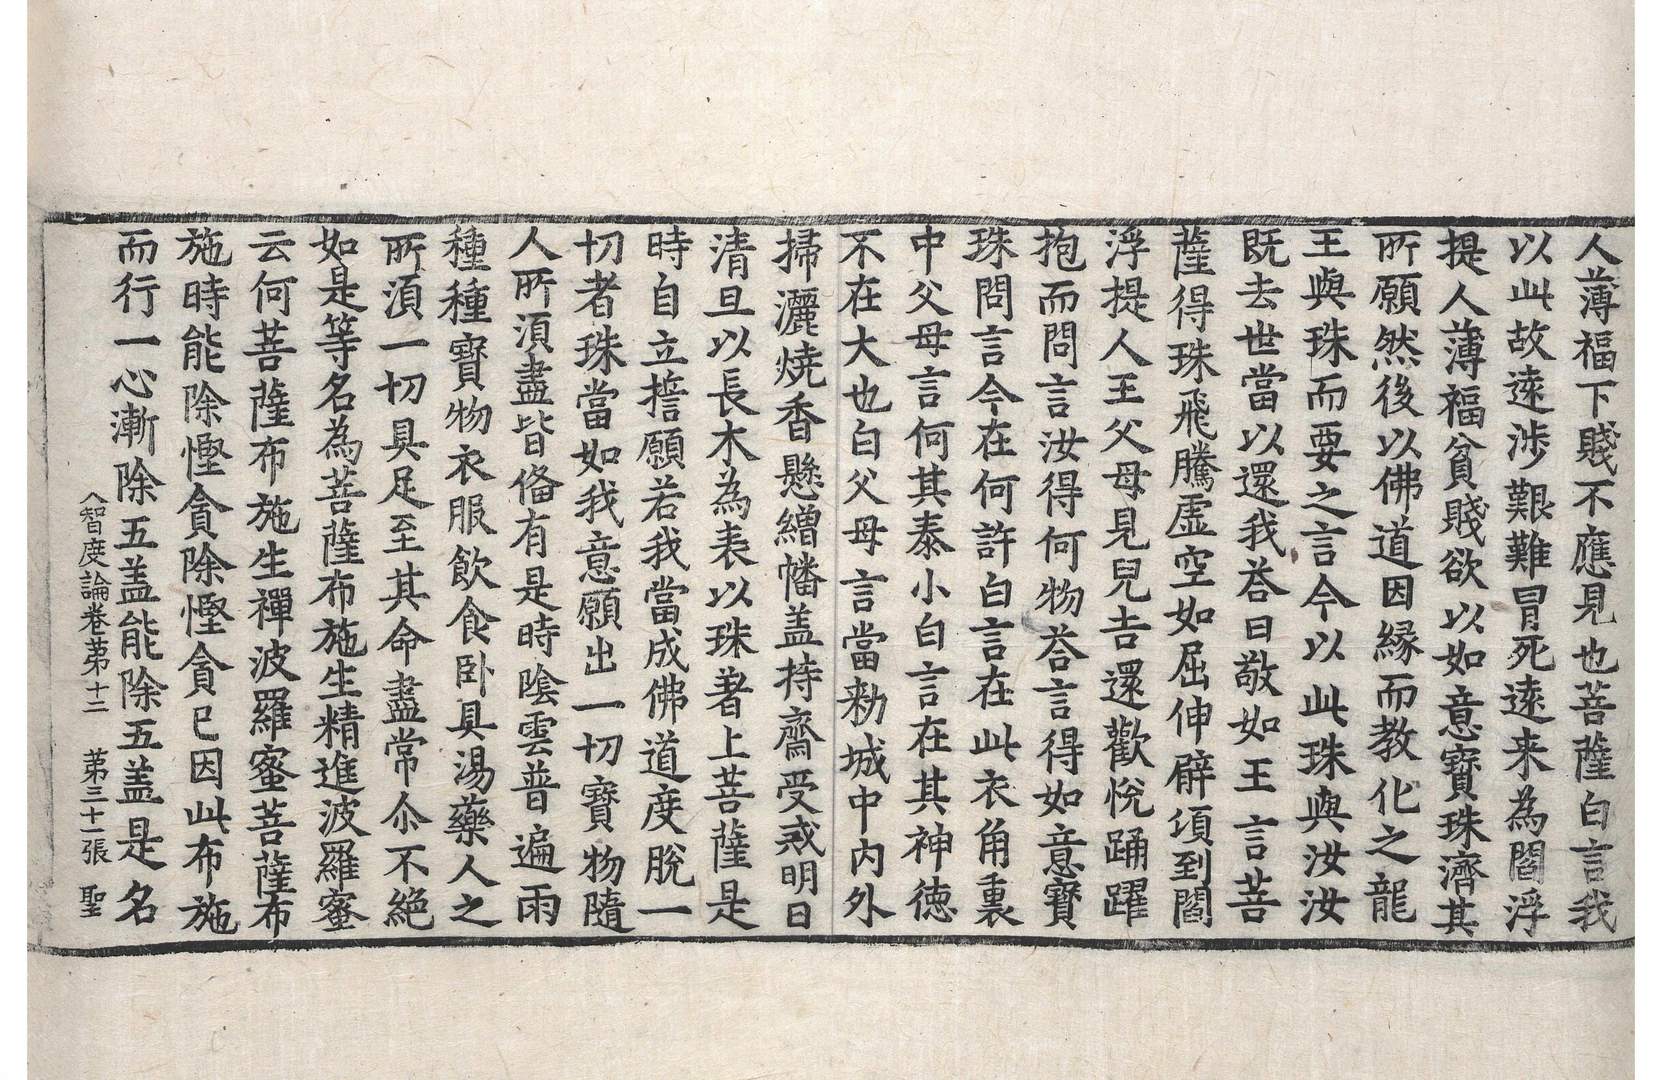 人薄福下賤不應見也菩薩白言我
以此故遠涉艱難冒死遠来為閻浮
提人薄福貧賤欲以如意寶珠濟其
所願然後以佛道因緣而教化之龍
王與珠而要之言今以此珠與汝汝
既去世當以還我荅曰敬如王言菩
薩得珠飛騰虛空如屈伸臂頃到閻
浮提人王父母見兒吉還歡悅踊躍
抱而問言汝得何物荅言得如意寶
珠問言今在何許白言在此衣角裏
中父母言何其泰小白言在其神德
不在大也白父母言當勑城中內外
掃灑燒香懸繒幡盖持齋受戒明日
清旦以長木為表以珠著上菩薩是
時自立誓願若我當成佛道度脫一
切者珠當如我意願出一切寶物隨
人所須盡皆俻有是時陰雲普遍雨
種種寶物衣服飲食臥具湯藥人之
所須一切具足至其命盡常尒不絕
如是等名為菩薩布施生精進波羅蜜
云何菩薩布施生禪波羅蜜菩薩布
施時能除慳貪除慳貪已因此布施
而行一心漸除五盖能除五盖是名
智度論卷第十二 第三十一張 聖